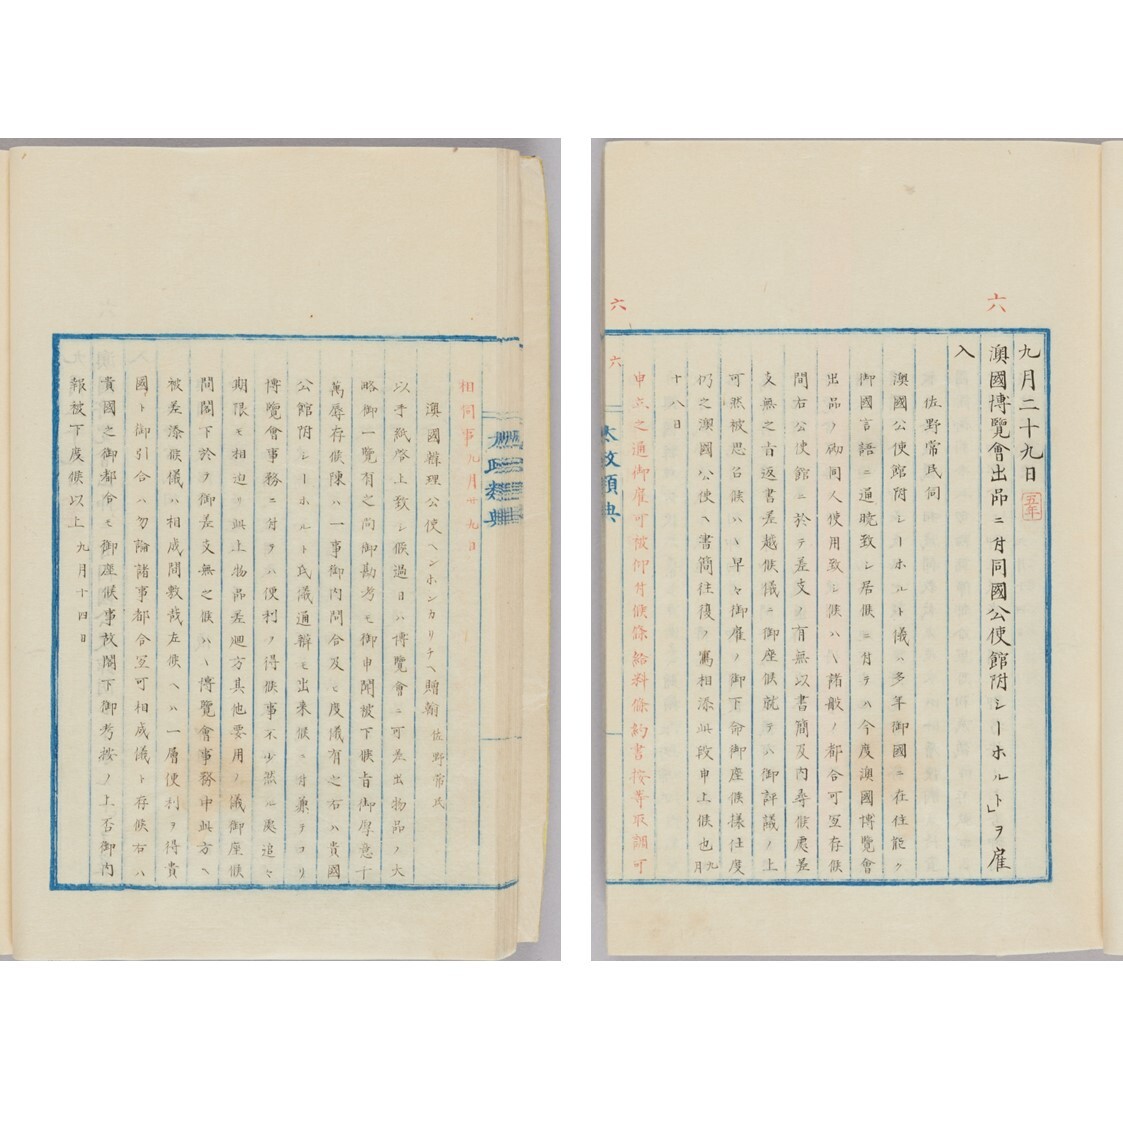 六
九月二十九日 五年
澳國博覽會出品ニ付同國公使館附シーホルト」ヲ雇
入
佐野常民伺
澳國公使館附シーホルト儀ハ多年御國ニ在住能ク
御國言語ニ通曉致シ居候ニ付テハ今度澳國博覽會
出品ノ砌同人使用致シ候ハヽ諸般ノ都合可宜存候
間右公使館ニ於テ差支ノ有無以書簡及内尋候處差
支無之旨返書差越候儀ニ御座候就テハ御評議ノ上
可然被思召候ハヽ早々御雇ノ御下命御座候樣仕度
仍之澳國公使ヘ書簡往復ノ寫相添此段申上候也九月
十八日
申立之通御雇可被仰付候條給料條約書按等取調可
六
六
太政類典
相伺事九月廿九日
澳國辨理公使ヘンホンカリチヘ贈翰 佐野常民
以手紙啓上致シ候過日ハ博覽會ニ可差出物品ノ大
略御一覽有之尚御勘考モ御申聞被下候旨御厚意千
萬辱存候陳ハ一事御内問合及ヒ度儀有之右ハ貴國
公館附シーホルト氏儀通辯モ出来候ニ付兼テヨリ
博覽會事務ニ付テハ便利ノ得候事不少然ル處追々
期限モ相迫リ此上物品差廻方其他要用ノ儀御座候
間閣下於テ御差支無之候ハヽ博覽會事務申此方ヘ
被差添候儀ハ相成間敷哉左候ヘハ一層便利ヲ得貴
國ト御引合ハ勿論諸事都合宜可相成儀ト存候右ハ
貴國之御都合モ御座候事故閣下御考按ノ上否御内
報被下度候以上 九月十四日